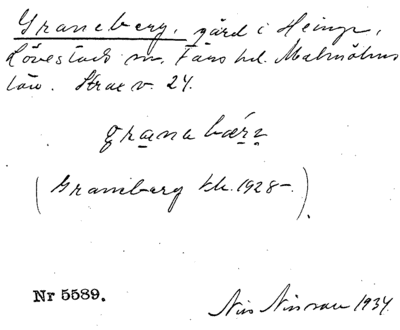 Graneberg, gård i Heinge,
Lövestads sn. Färs hd. Malmöhus
län. Strax v. 24.
grana bærɂ
(Graneberg tk. 1928-).
Nr 5589. Nils Nilsson 1934.